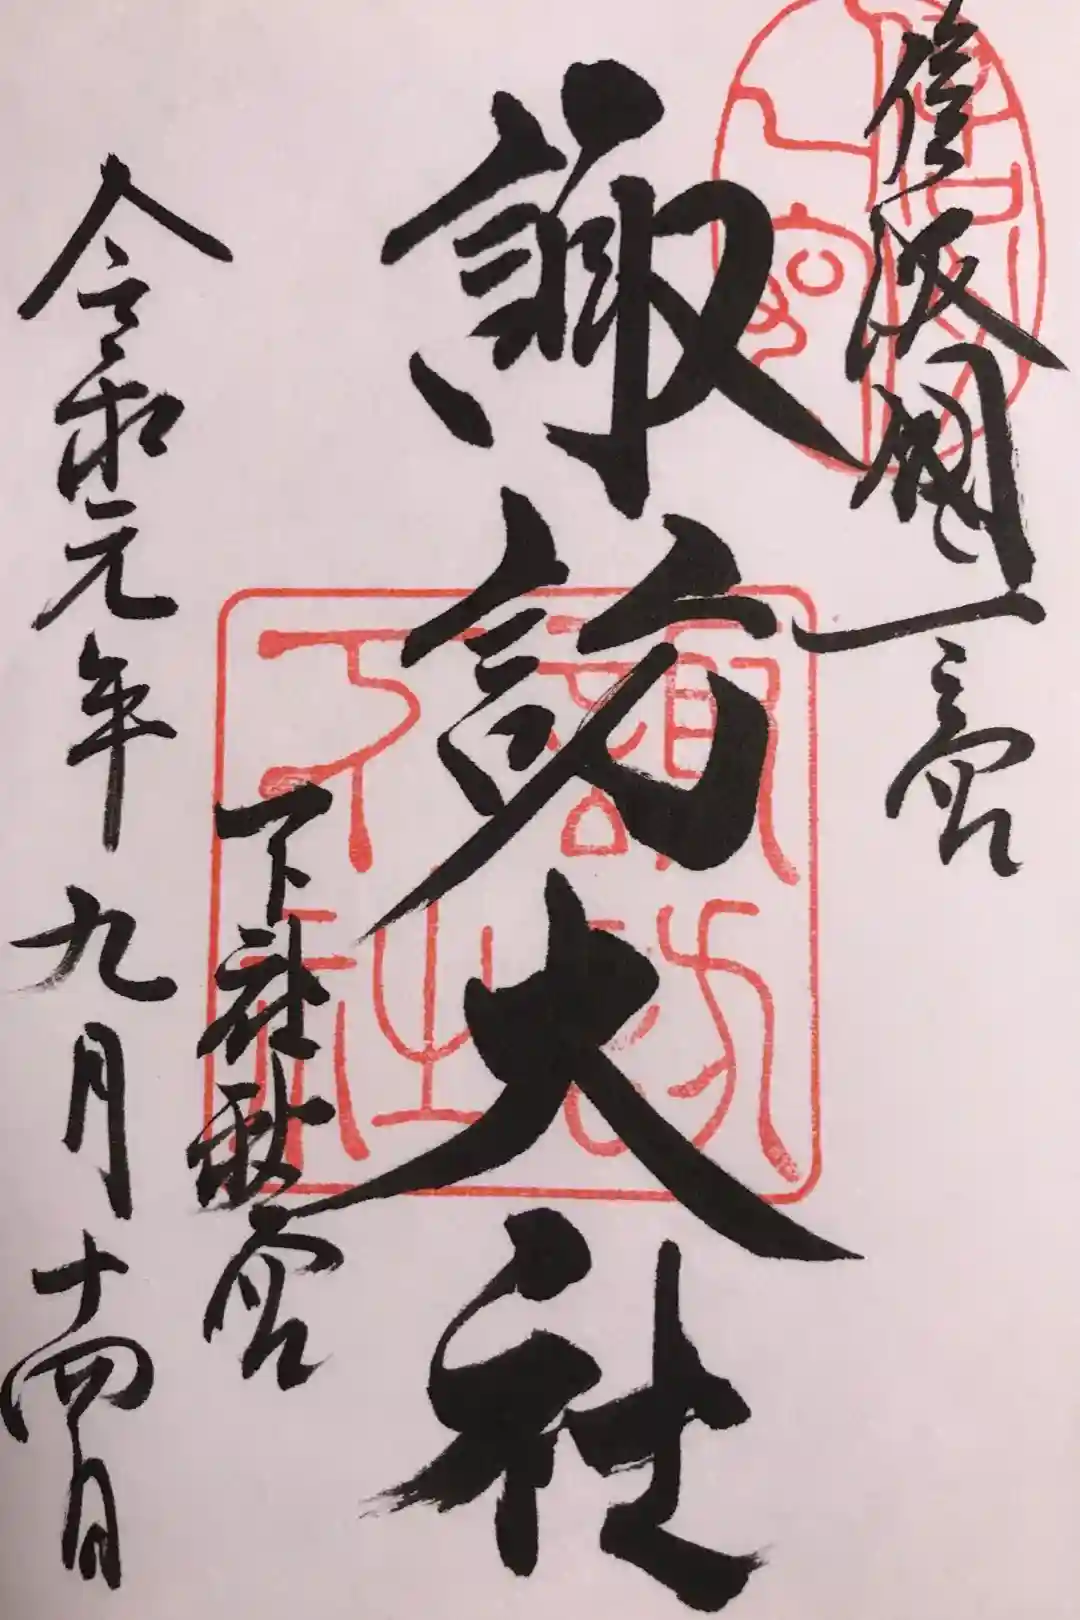 信濃國一宮
諏訪大社
下社秋宮
令和元年九月十四日
諏訪
下之社